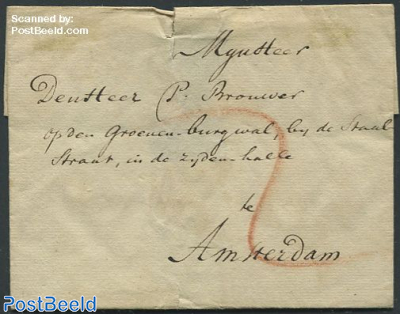 Scanned by:
PostBeeld.com
MynHeer
Den Heer P. Brouwer
op den Groenen-burgwal, by de Staal
Straat, in de zijden-halle
te
Amsterdam
2
PostBeeld